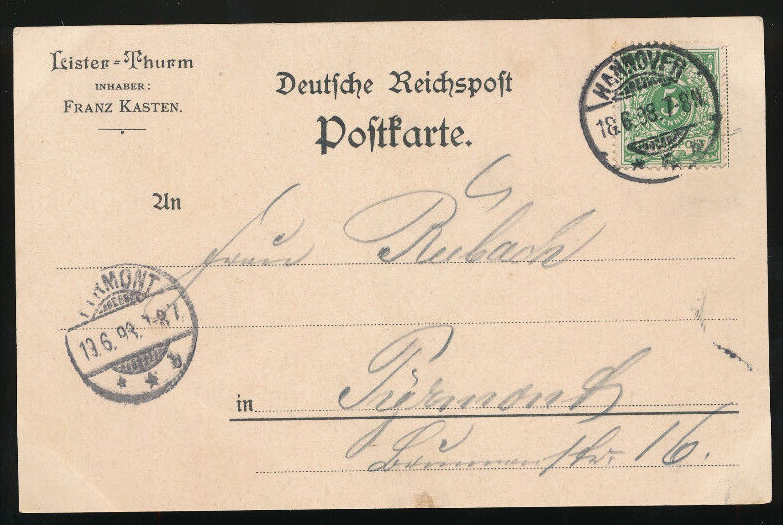 Lister=Thurm
INHABER:
FRANZ KASTEN.
Deutsche Reichspost
Postkarte.
HANNOVER
18.6.98. 7-8N.
5
An
Frau Rubach
PYRMONT
19.6.98. 7-8V.
in Pyrmont
Brunnenstr. 16.